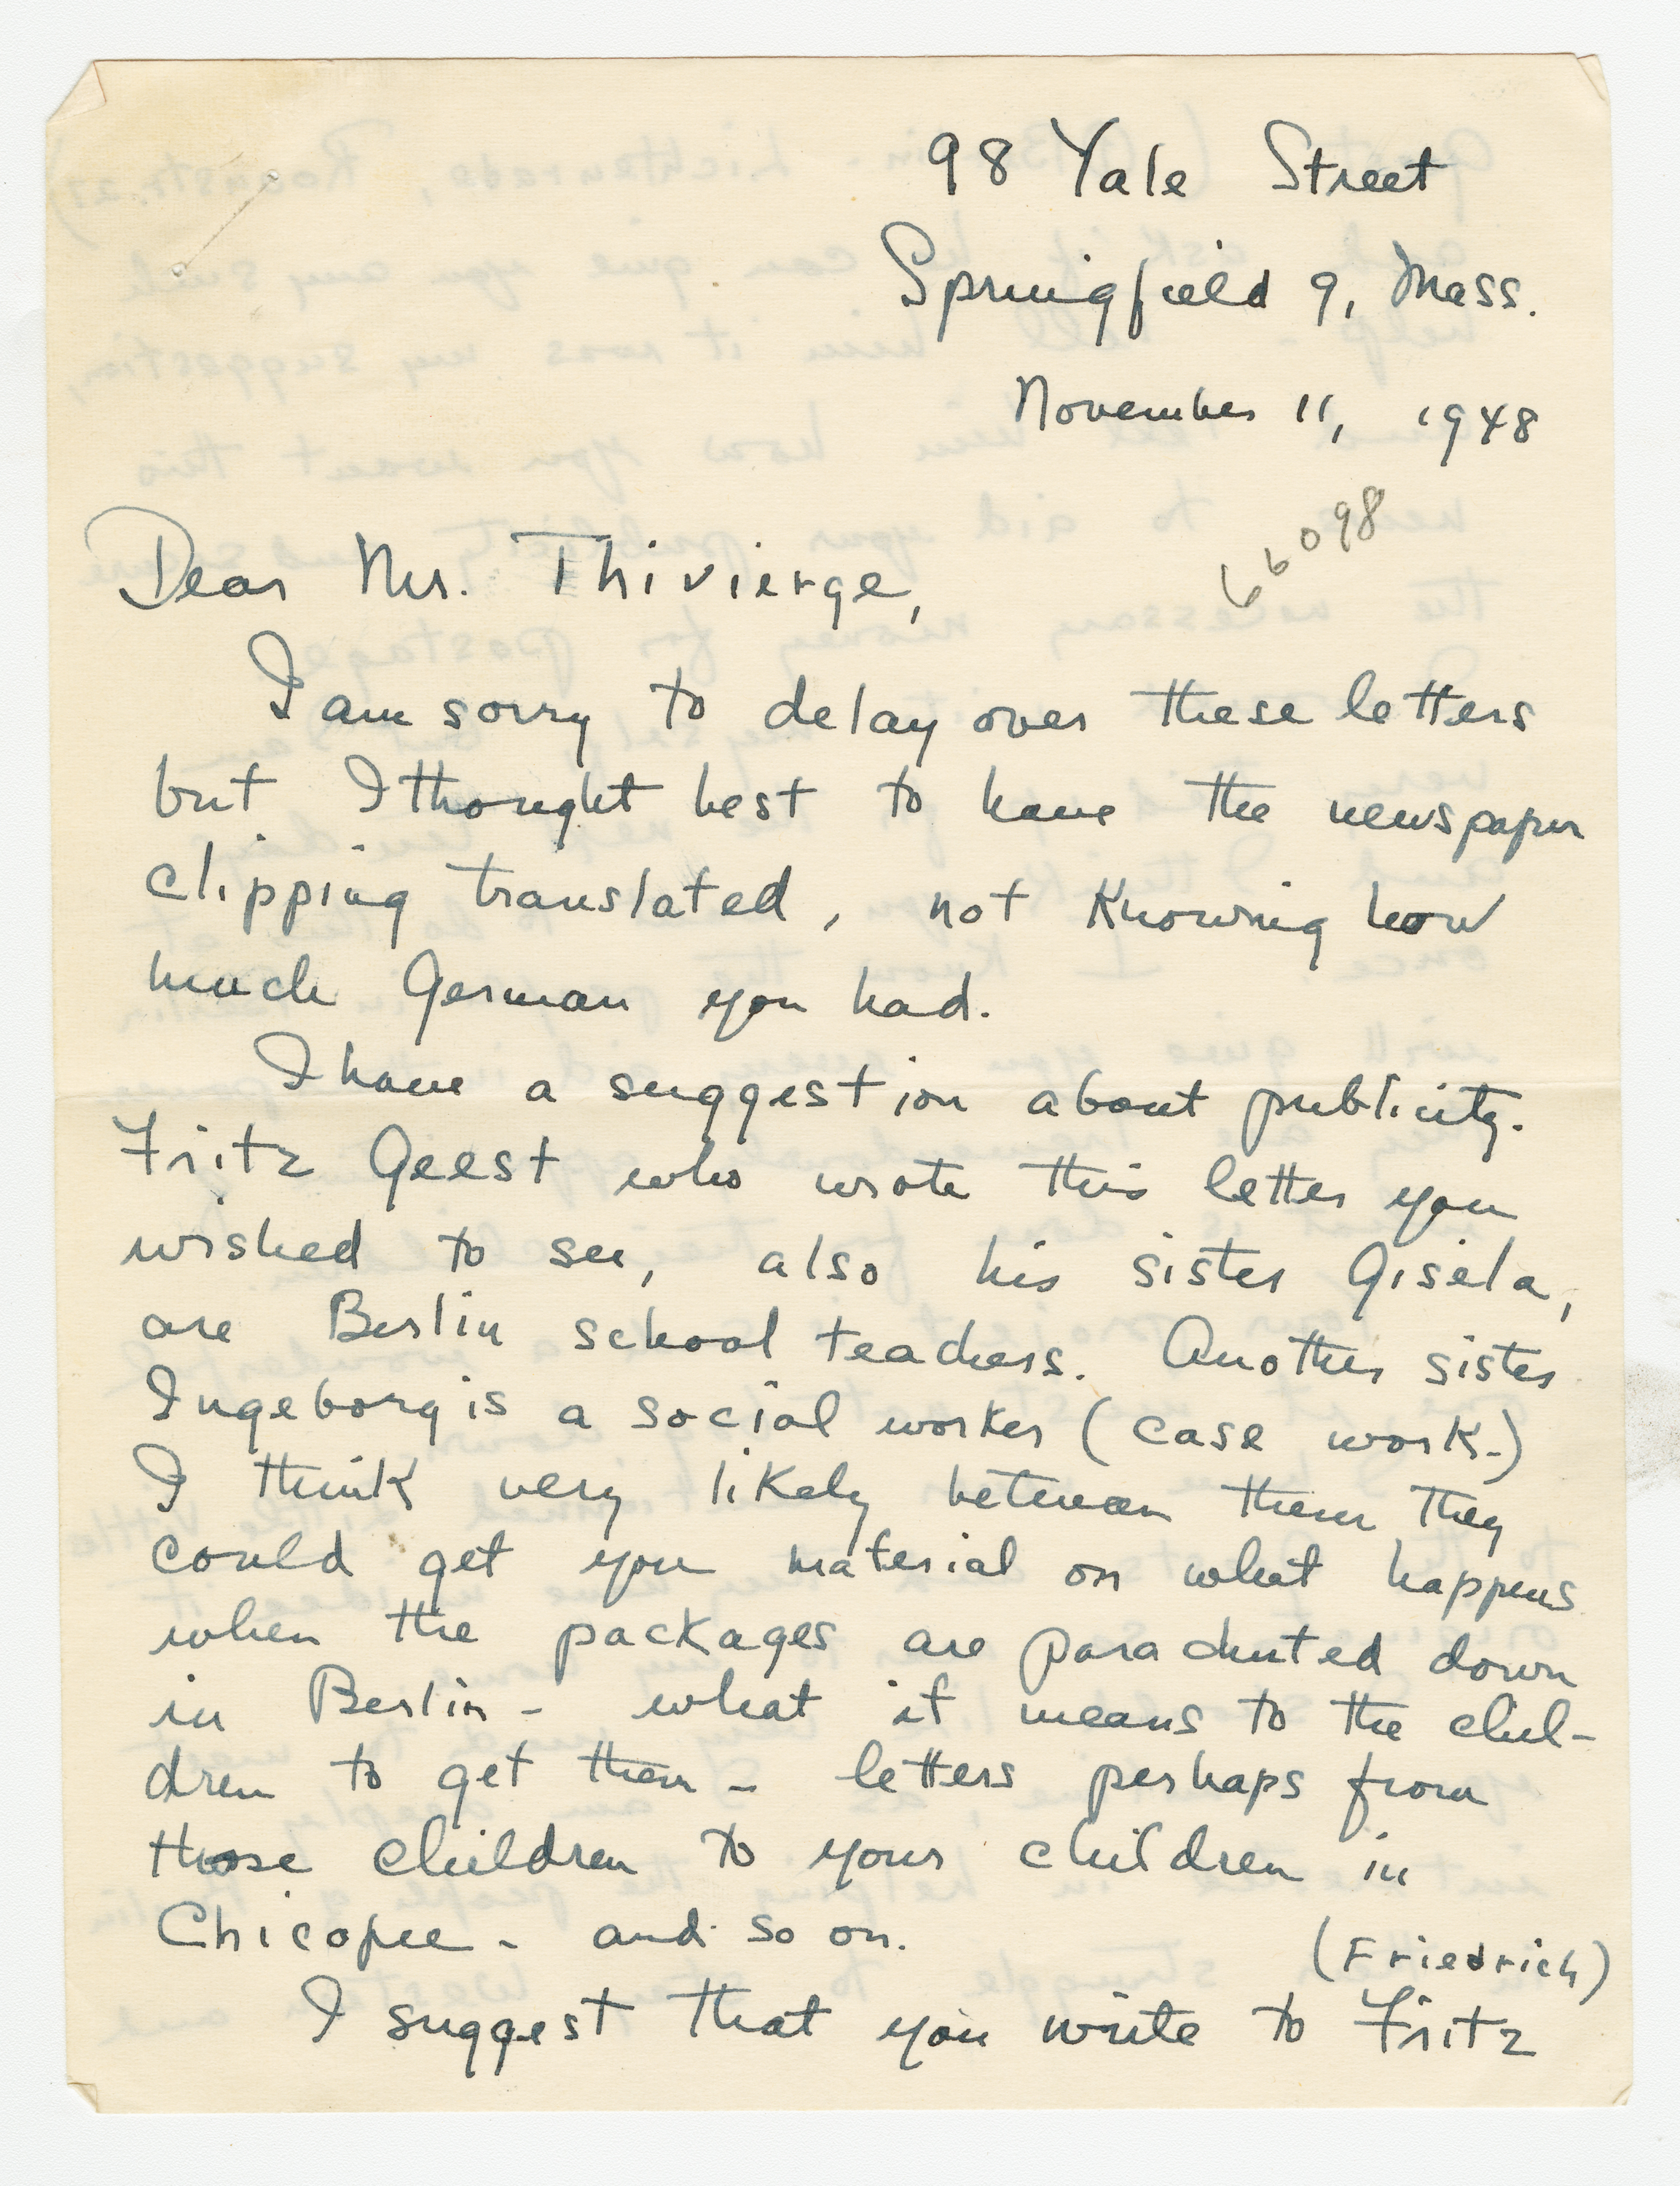 98 Yale Street
Springfield 9, Mass.
November 11, 1948
66098
Dear Mr. Thivierge,
I am sorry to delay over these letters
but I thought best to have the newspaper
clipping translated, not knowing how
much German you had.
I have a suggestion about publicity.
Fritz Geest who wrote this letter you
wished to see, also his sister Gisela,
are Berlin school teachers. Another sister
Ingeborg is a social worker (case work.)
I think very likely between them they
could get you material on what happens
when the packages are parachuted down
in Berlin - what it means to the chil-
dren to get them - letters perhaps from
those children to your children in
Chicopee - and so on.
(Friedrich)
I suggest that you write to Fritz